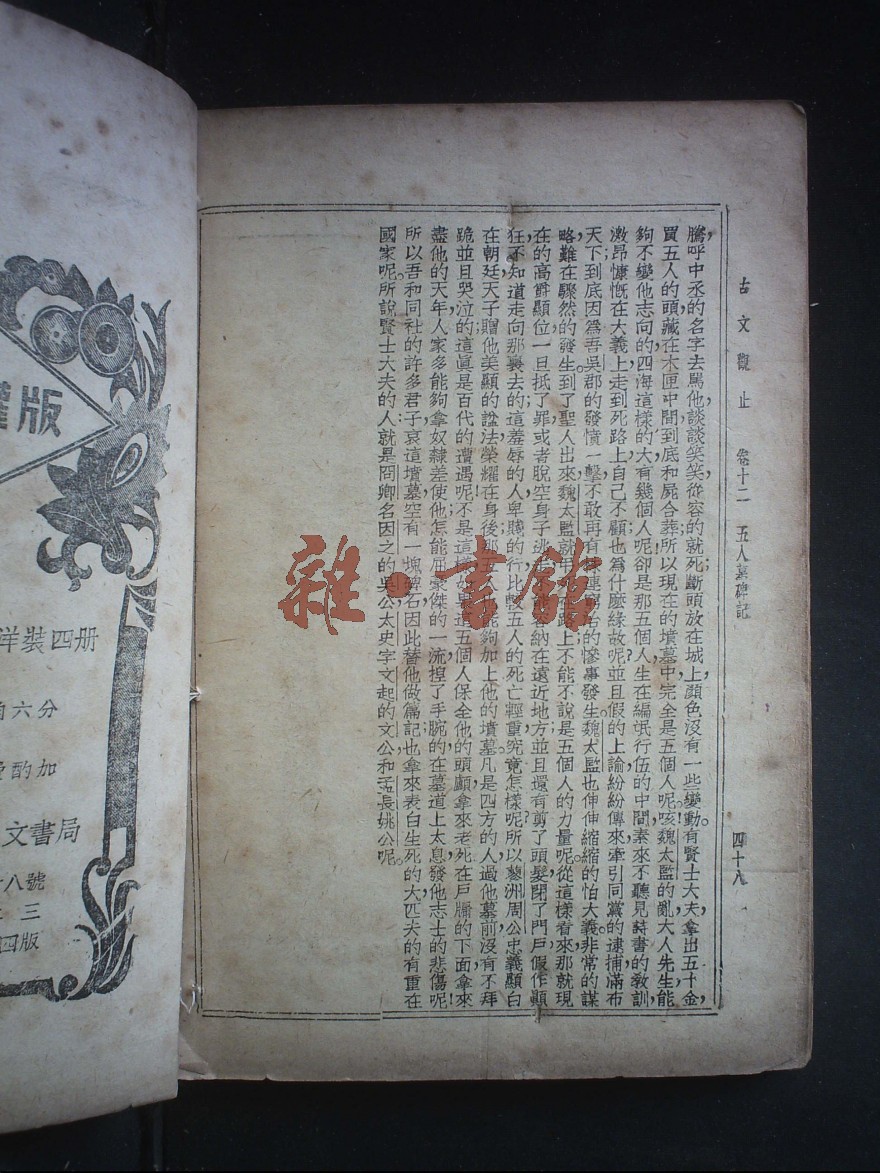 古文觀止 卷十二 五人墓碑記 四十八
騰呼中丞的名字去罵他談談笑笑從容的就死斷頭放在城上顏色沒有一些變動有賢士大夫拿出五十金,
買五人的頭藏在木匣中間到底和屍合葬所以現在的墳墓中完全是五個人呢咳魏太監的亂大人先生能
夠不變他志向的四海這樣的大有幾個人呢卻是那五個人生在編氓行伍的中間素來不聽見詩書的敎訓,
激昂慷慨在大義上走到死路上自己不顧也爲什麼緣故呢並且假的上諭紛紛傳來牽引同黨的逮捕滿布
天下到底因爲吾吳郡的發憤一擊不敢再有治的慘事發生魏太監也伸伸縮縮的怕大義非常的謀
略難在驟然的發生到了聖人出來魏太監就路上不能不說是五個人的力量呢從這樣看來那就現
在的高爵顯位一旦抵了罪或者脫空身子逃納在遠近地方並且還有剪了頭髮閉了門戶假作顚
狂不知道走向那裏去的這羞辱的人卑賤的行比較五人的死亡輕重究竟怎樣呢所以蓼洲周公忠義顯白
在朝廷天子贈他美顯的諡法榮耀在身後那五人也能夠加上他的墳墓凡是四方的人過他墓前沒有不拜
跪並且哭泣的這眞是百代的遭遇呢不是這五個人保全他的頭顱拿來老死在戶牖的下面拿來
盡他的天年人家多能夠拿奴隸差使他怎能屈豪傑的一流揑了手腕的在墓道上太息發他志士的悲傷呢
所以吾和同社的許多君子哀這墳墓空有一塊碑石因此替他做篇記也拿來表白生死的大匹夫的有重在
國家呢所說賢士大夫的人就是冏卿名因之的吳公太史字文起的文公和孟長姚公呢
權版
洋裝四册
六分
酌加
文書局
十八號
三
四版
雜·書館